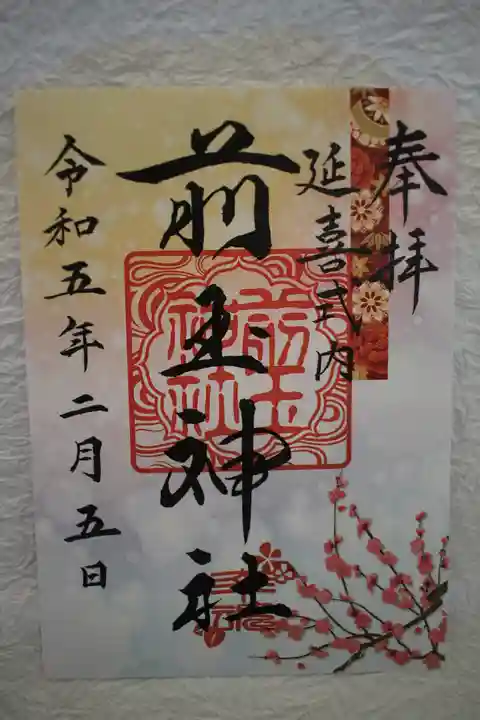 奉拝
延喜式内
前玉神社
前玉
神社
令和五年二月五日